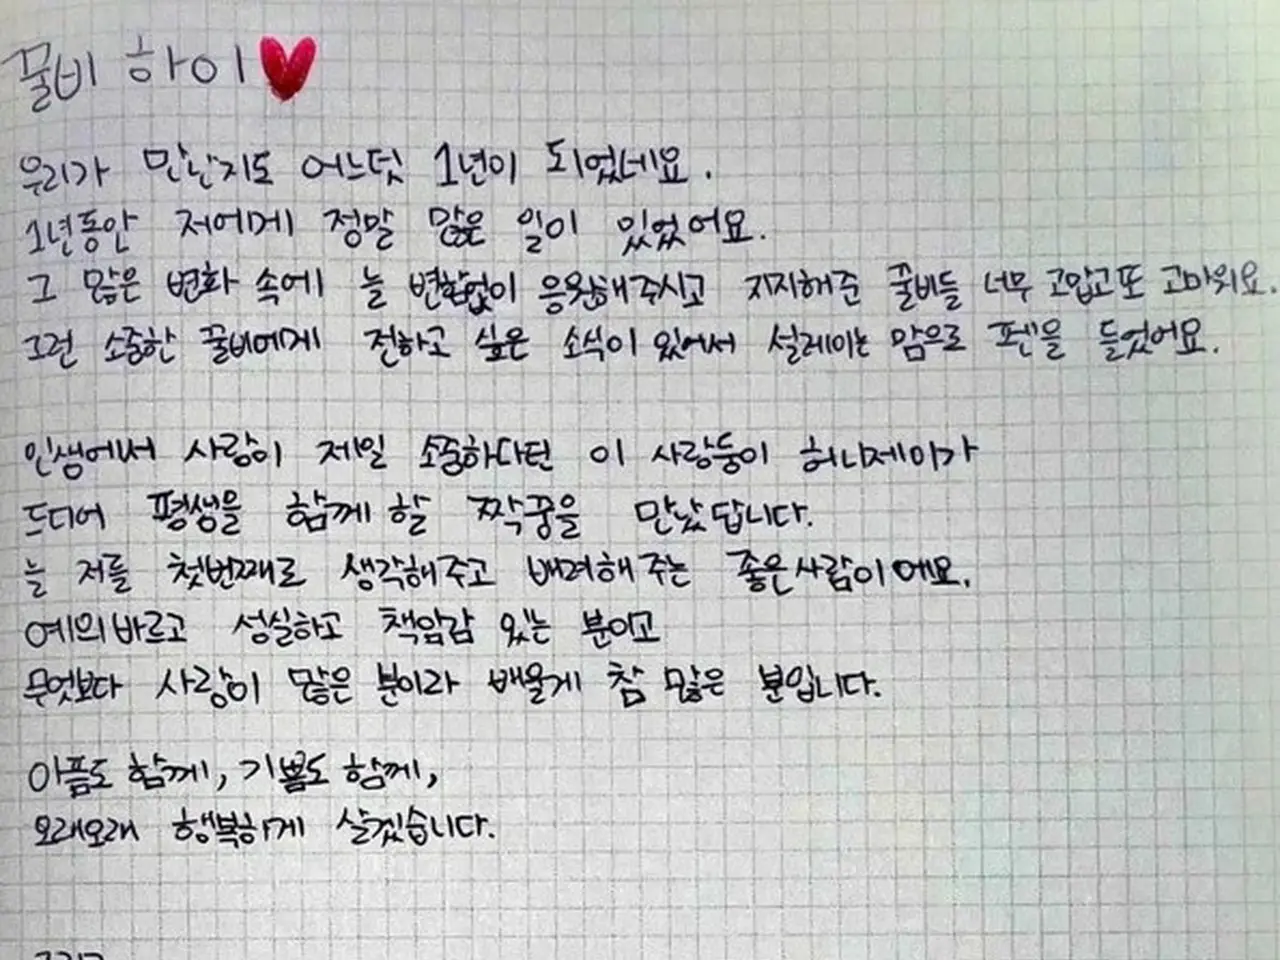 꿀비 하이
우리가 만난지도 어느덧 1년이 되었네요.
1년동안 저에게 정말 많은 일이 있었어요.
그 많은 변화 속에 늘 변함없이 응원해주시고 지지해준 꿀비들 너무 고맙고 또 고마워요.
그런 소중한 꿀비에게 전하고 싶은 소식이 있어서 설레이는 맘으로 펜을 들었어요.
인생에서 사랑이 제일 소중하다던 이 사랑둥이 허니제이가
드디어 평생을 함께 할 짝꿍을 만났답니다.
늘 저를 첫번째로 생각해주고 배려해 주는 좋은사람이에요.
예의바르고 성실하고 책임감 있는 분이고
무엇보다 사랑이 많은 분이라 배울게 참 많은 분입니다.
아픔도 함께, 기쁨도 함께,
오래오래 행복하게 살겠습니다.